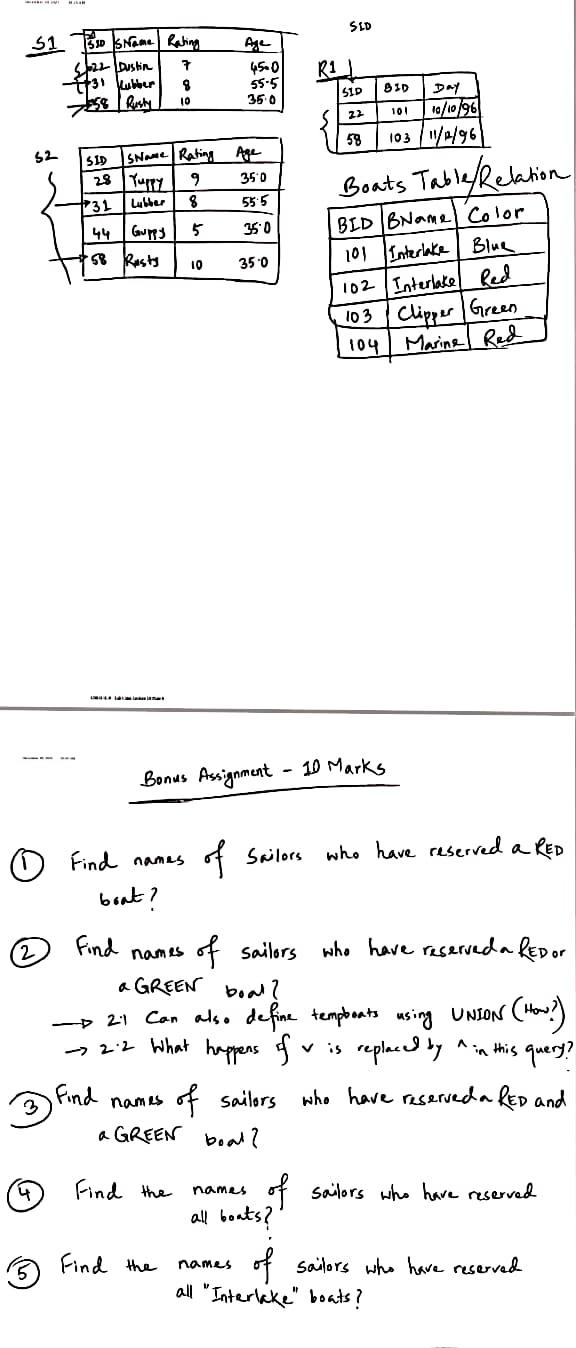 SID
S1
SID SName Rating Age
22 Dustin 7 45.0
31 Lubber 8 55.5
58 Rusty 10 35.0
R1
SID BID Day
22 101 10/10/96
58 103 11/12/96
S2
SID SName Rating Age
28 Yuppy 9 35.0
31 Lubber 8 55.5
44 Guppy 5 35.0
58 Rusty 10 35.0
Boats Table/Relation
BID BName Color
101 Interlake Blue
102 Interlake Red
103 Clipper Green
104 Marine Red
Bonus Assignment - 10 Marks
① Find names of Sailors who have reserved a RED
boat?
② Find names of sailors who have reserved a RED or
a GREEN boat?
→ 2.1 Can also define tempboats using UNION (How?)
→ 2.2 What happens if v is replaced by ^ in this query?
③ Find names of sailors who have reserved a RED and
a GREEN boat?
④ Find the names of sailors who have reserved
all boats?
⑤ Find the names of sailors who have reserved
all "Interlake" boats?